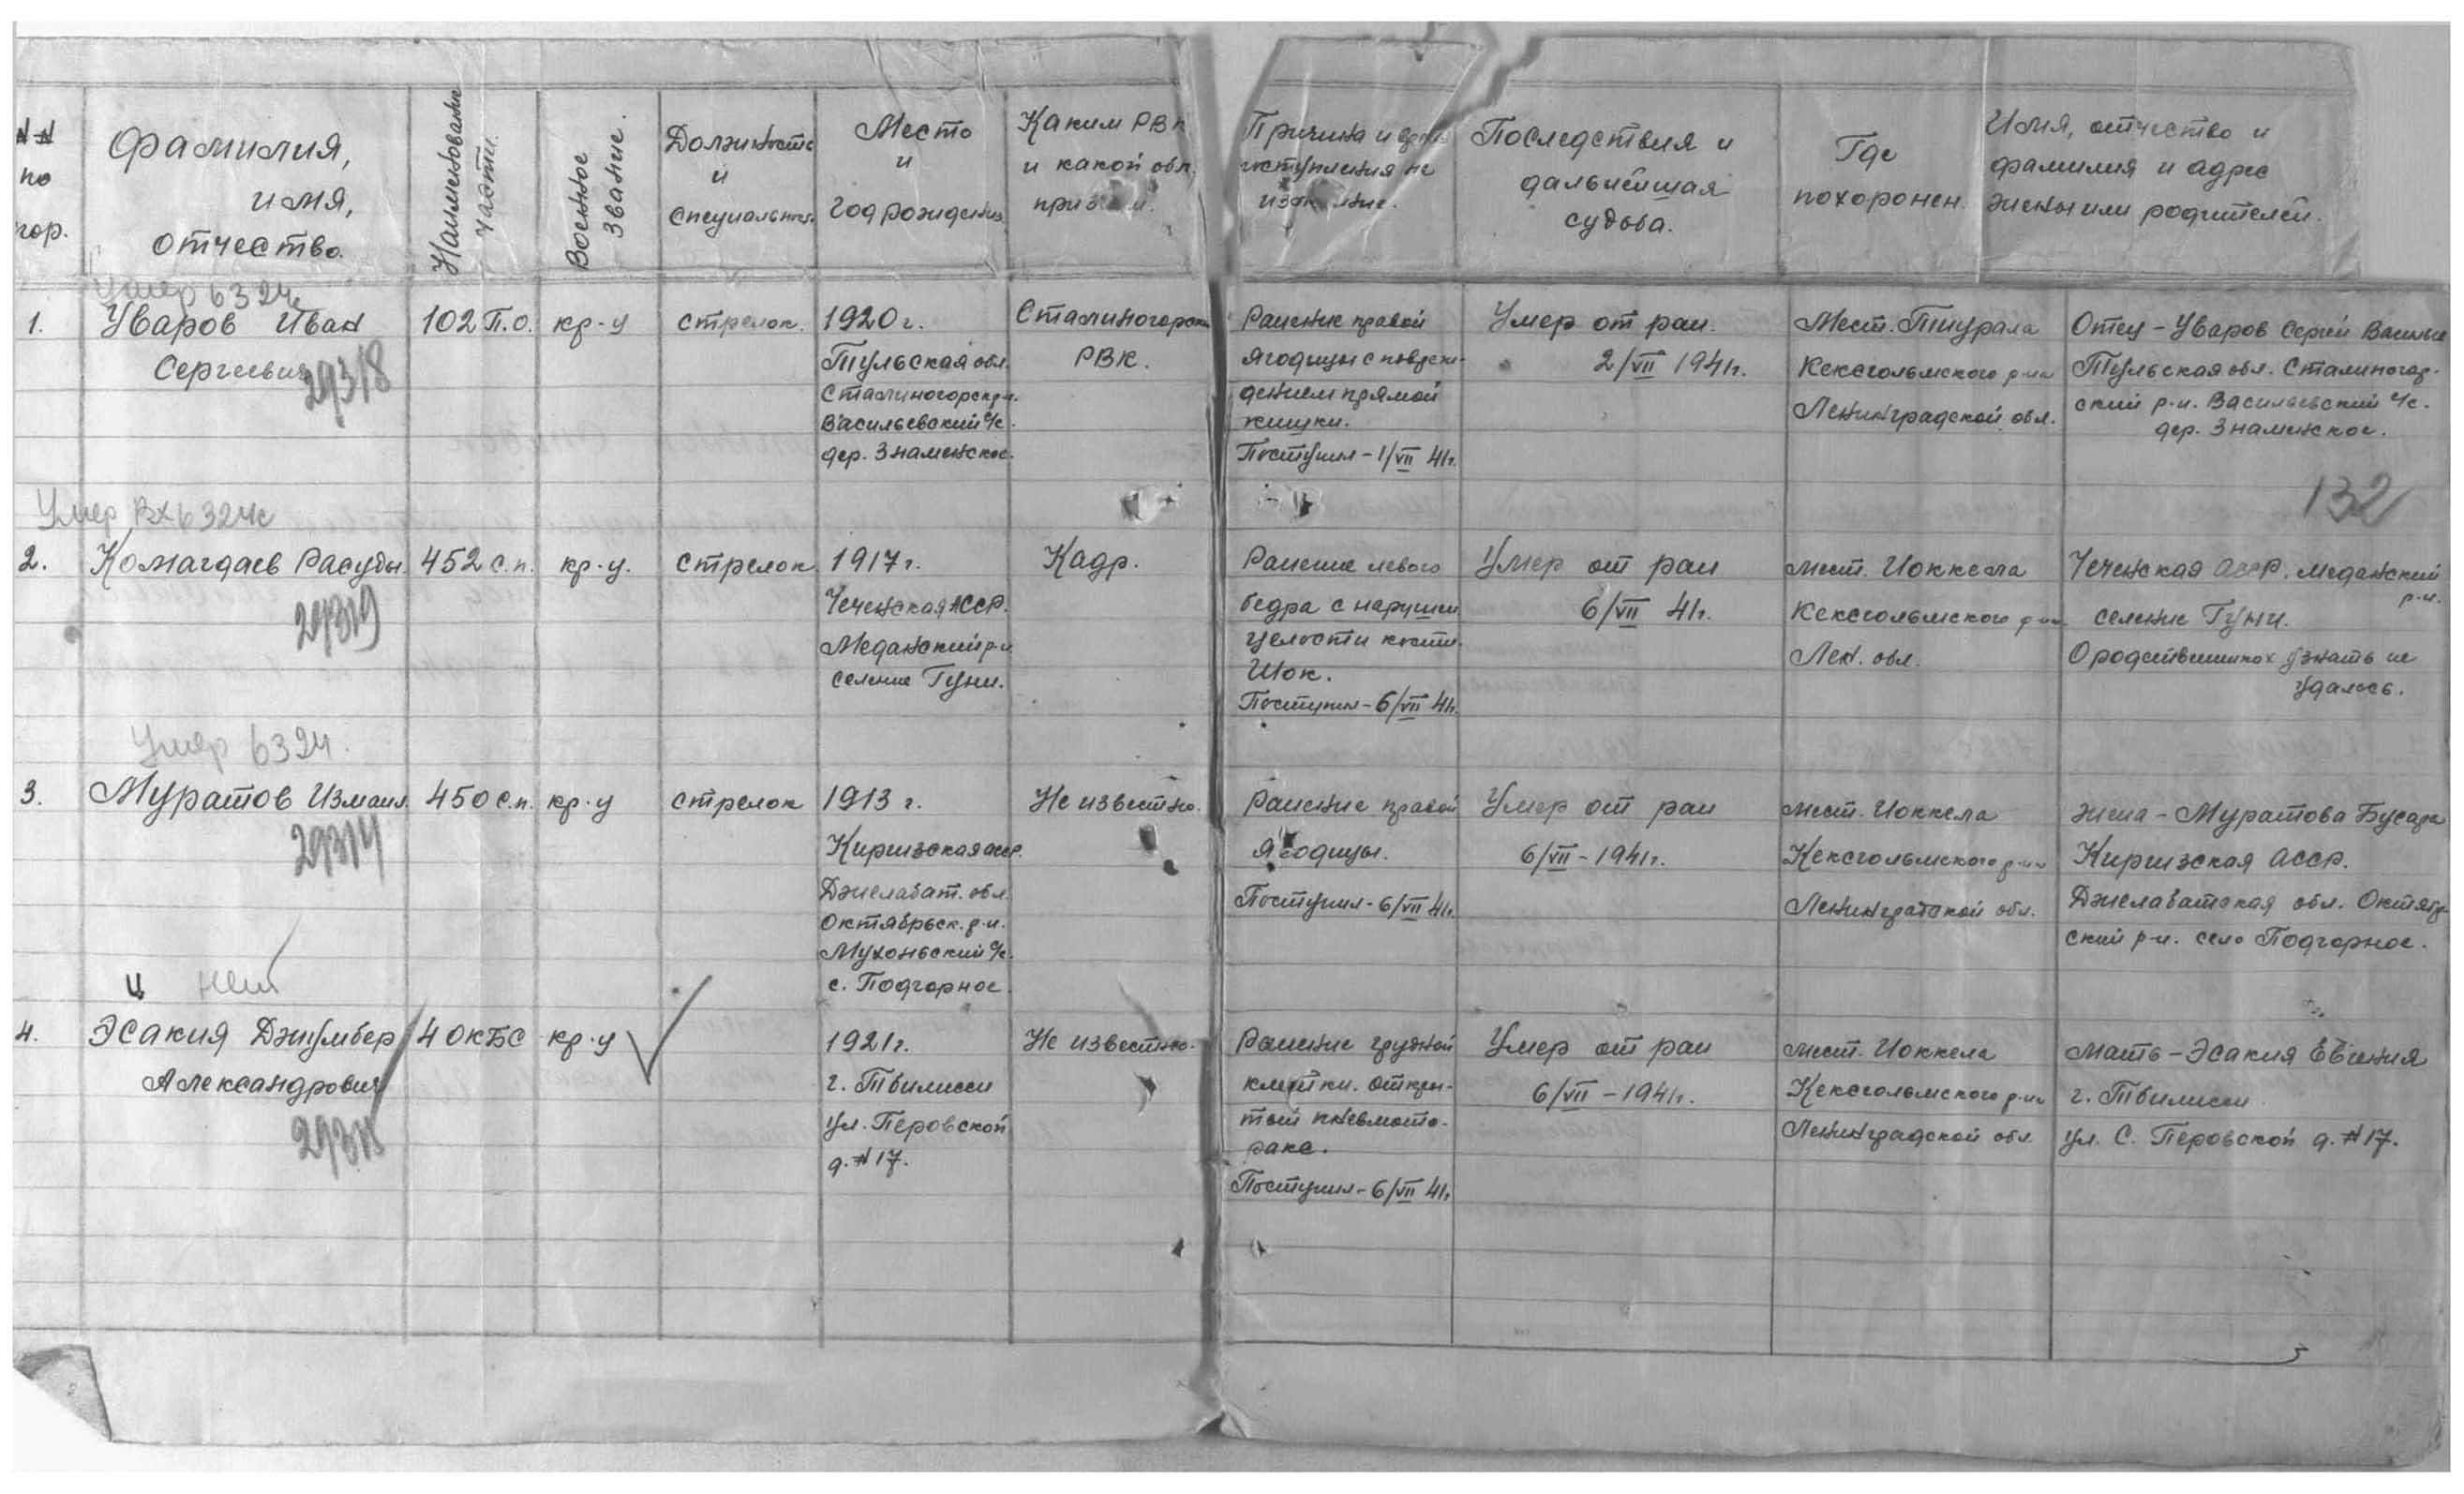 №№
по
пор.
Фамилия,
имя,
отчество.
Наименование
части.
Военное
звание.
Должность
и
специальност.
Место
и
год рождения
Каким РВК
и какой обл.
призван.
Причина и
поступления на
Последствия и
дальнейшая
судьба.
Где
похоронен.
Имя, отчество и
фамилия и адрес
жены или родителей.
Умер 6324с
1.
Уваров Иван
Сергеевич
29318
102 П.О.
кр-ц
стрелок.
1920 г.
Тульская обл.
Сталиногорск р-н.
Васильевский с/с.
дер. Знаменское.
Сталиногорски
РВК.
Ранение правой
ягодицы с повреж-
дением прямой
кишки.
Поступил - 1/VII 41г.
Умер от ран.
2/VII 1941г.
Мест. Тиурала
Кексгольмского р-на
Ленинградской обл.
Отец - Уваров Сергей Василье
Тульская обл. Сталиногор-
ский р-н. Васильевский с/с.
дер. Знаменское.
132
Умер Вх 6324с
2.
Комагдаев Расуды.
29319
452 с.п.
кр-ц.
стрелок
1917 г.
Чеченская АССР.
Меданский р-н
селение Гуни.
Кадр.
Ранение левого
бедра с наруше
целости кости.
Шок.
Поступил - 6/VII 41г.
Умер от ран
6/VII 41г.
мест. Иоккела
Кексгольмского р-на
Лен. обл.
Чеченская АССР. Меданский
р-н.
селение Гуни.
О родственниках узнать не
удалось.
Умер 6324.
3.
Муратов Измаил.
29314
450 с.п.
кр-ц
стрелок
1913 г.
Киргизская асср.
Джелабат. обл.
Октябрьск. р-н.
Мухоньский с/с.
с. Подгорное.
Не известно.
Ранение правой
ягодицы.
Поступил - 6/VII 41г.
Умер от ран
6/VII - 1941г.
мест. Иоккела
Кексгольмского р-на
Ленинградской обл.
жена - Муратова Бусара
Киргизская АССР.
Джелабатская обл. Октябр-
ский р-н. село Подгорное.
ц нет
4.
Эсакия Джумбер
Александрович
29315
4 ОКБС
кр-ц
1921г.
г. Тбилисси
ул. Перовской
д. № 17.
Не известно.
Ранение грудной
клетки. Откры-
тый пневмото-
ракс.
Поступил - 6/VII 41г.
Умер от ран
6/VII - 1941г.
мест. Иоккела
Кексгольмского р-на
Ленинградской обл.
мать - Эсакия Евгения
г. Тбилисси
ул. С. Перовской д. № 17.